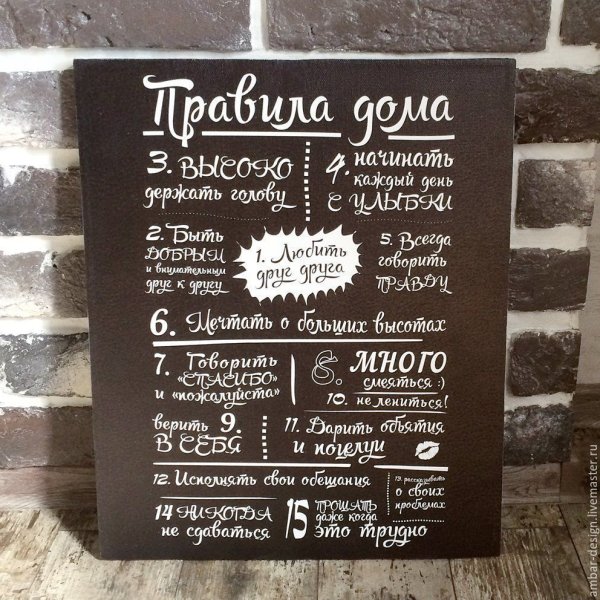 Правила дома
3. ВЫСОКО
держать голову
4. начинать
каждый день
С УЛЫБКИ
2. Быть
ДОБРЫМ
и внимательным
друг к другу
1. Любить
друг друга
5. Всегда
говорить
ПРАВДУ
6. Мечтать о больших высотах
7. Говорить
«СПАСИБО»
и «пожалуйста»
8. МНОГО
смеяться :)
10. не лениться!
верить 9.
В СЕБЯ
11. Дарить объятия
и поцелуи
12. Исполнять свои обещания
13. рассказывать
о своих
проблемах
14 НИКОГДА
не сдаваться
15 ПРОЩАТЬ
даже когда
это трудно
ambar-design.livemaster.ru